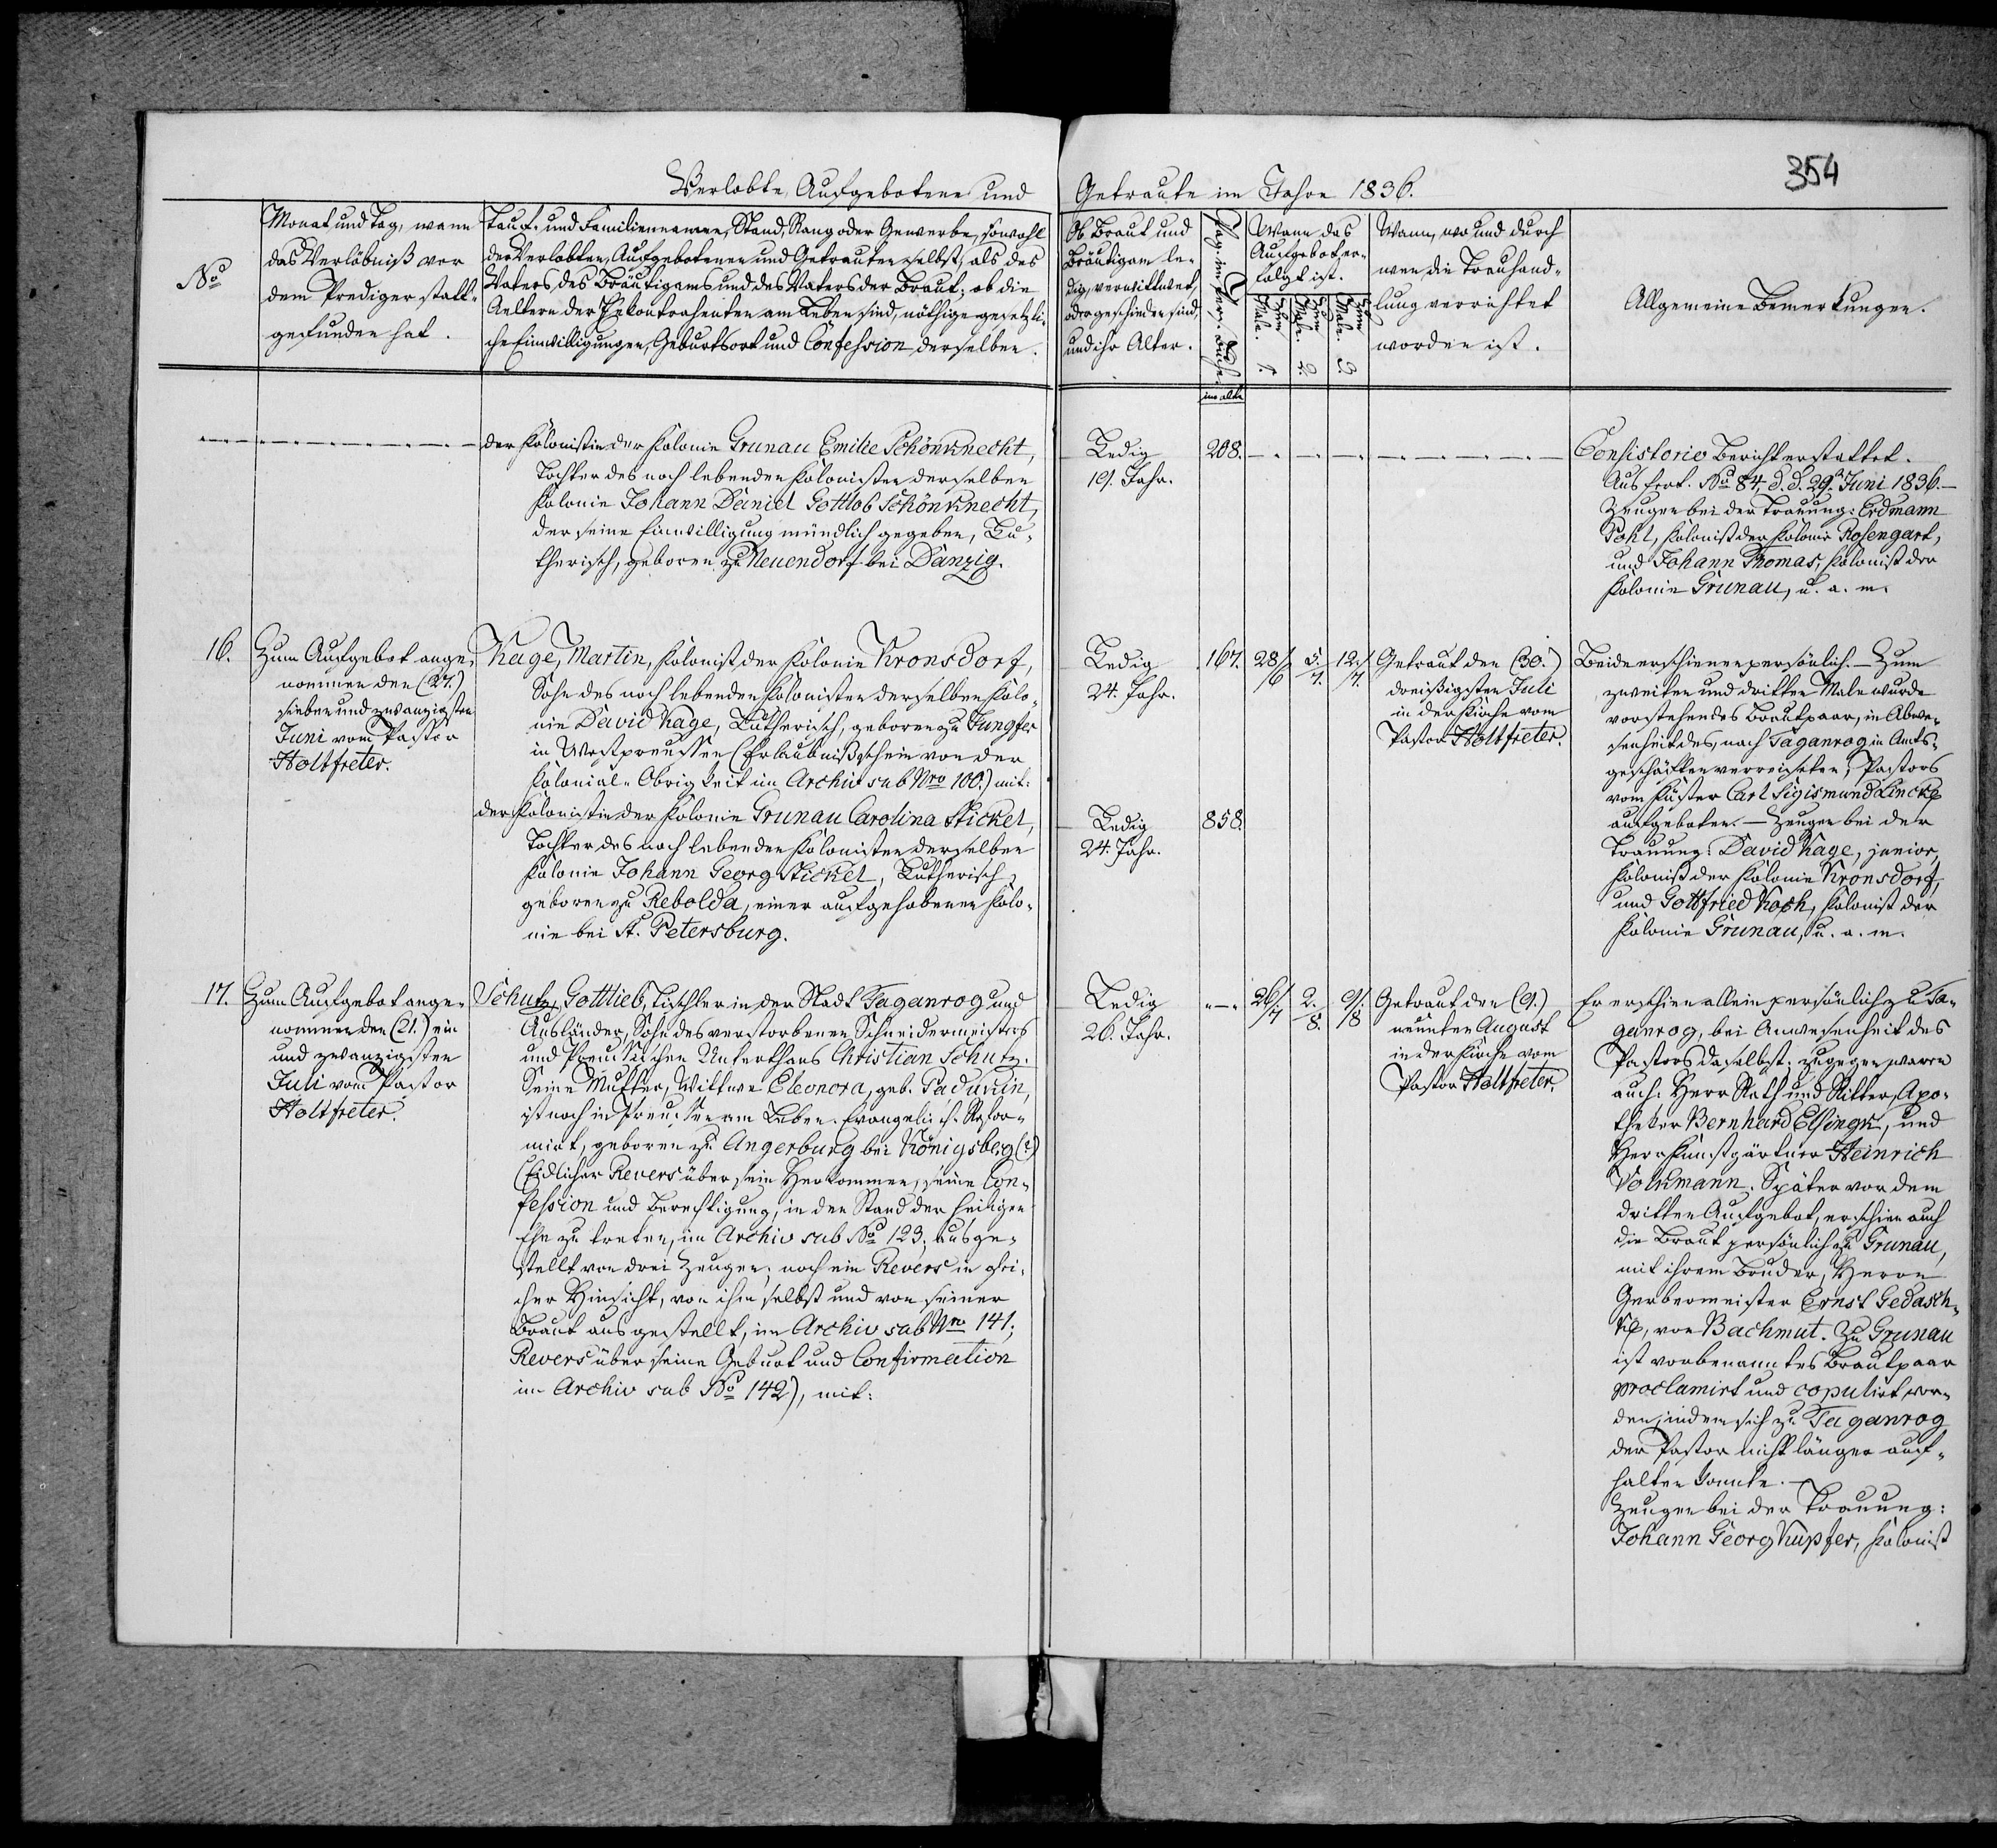 354
Verlobte, Aufgebotene und Getraute im Jahre 1836.
No
Monat und Tag, wann
das Verlöbniß vor
dem Prediger statt-
gefunden hat.
Tauf- und Familiennamen, Stand, Rang oder Gewerbe, sowohl
der Verlobten, Aufgebotenen und Getrauten selbst, als des
Vaters des Bräutigams und des Vaters der Braut; ob die
Aeltern der Ehekontrahenten am Leben sind, nöthige gesetzli-
che Einwilligungen, Geburtsort und Confession derselben.
Ob Braut und
Bräutigam le-
dig, verwittwet,
oder geschieden sind,
und ihr Alter.
Wann das
Aufgebot er-
folgt ist.
Zum 1. Male.
Zum 2. Male.
Zum 3. Male.
Wann, wo und durch
wen die Trauhand-
lung verrichtet
worden ist.
Allgemeine Bemerkungen.
der Kolonistin der Kolonie Grunau Emilie Schönknecht,
Tochter des noch lebenden Kolonisten derselben
Kolonie Johann Daniel Gottlob Schönknecht,
der seine Einwilligung mündlich gegeben, Lu-
therisch, geboren zu Neuendorf bei Danzig.
Ledig
19. Jahr.
208.
Consistorio Bericht erstattet.
No 84. d. d. 29. Juni 1836.
Zeugen bei der Trauung: Erdmann
Pohl, Kolonist der Kolonie Rosengart,
und Johann Thomas, Kolonist der
Kolonie Grunau, u. a. m.
16.
Zum Aufgebot ange-
nommen den (27.)
sieben und zwanzigsten
Juni vom Pastor
Holtfreter.
Hage, Martin, Kolonist der Kolonie Kronsdorf,
Sohn des noch lebenden Kolonisten derselben Kolo-
nie David Hage, Lutherisch, geboren zu Jungfer
in Westpreussen (Erlaubnißschein von der
Kolonial-Obrigkeit im Archiv sub Nro 100.) mit:
der Kolonistin der Kolonie Grunau Carolina Stickel,
Tochter des noch lebenden Kolonisten derselben
Kolonie Johann Georg Stickel, Lutherisch,
geboren zu Rebolda, einer aufgehobenen Kolo-
nie bei St. Petersburg.
Ledig
24. Jahr.
167.
28/6
5./7.
12./7.
Ledig
24. Jahr.
858.
Getraut den (30.)
dreißigsten Juli
in der Kirche vom
Pastor Holtfreter.
Beide erschienen persönlich. — Zum
zweiten und dritten Male wurde
vorstehendes Brautpaar, in Abwe-
senheit des, nach Taganrog in Amts-
geschäften verreiseten, Pastors
vom Küster Carl Sigismund Lincke
aufgeboten. — Zeugen bei der
Trauung: David Hage, junior,
Kolonist der Kolonie Kronsdorf,
und Gottfried Koch, Kolonist der
Kolonie Grunau, u. a. m.
17.
Zum Aufgebot ange-
nommen den (21.) ein
und zwanzigsten
Juli vom Pastor
Holtfreter.
Schutz, Gottlieb, Tischler in der Stadt Taganrog und
Ausländer, Sohn des verstorbenen Schneidermeisters
und Preussischen Unterthans Christian Schutz.
Seine Mutter, Wittwe Eleonora, geb. Padurin,
ist noch in Preussen am Leben. Evangelisch-Refor-
mirt, geboren zu Angerburg bei Königsberg (?)
(Eidlicher Revers über sein Herkommen, seine Con-
fession und Berechtigung, in den Stand der heiligen
Ehe zu treten, im Archiv sub No 123, ausge-
stellt von drei Zeugen; noch ein Revers in
cher Hinsicht, von ihm selbst und von seiner
Braut ausgestellt, im Archiv sub Nro 141;
Revers über seine Geburt und Confirmation
im Archiv sub No 142), mit:
Ledig
26. Jahr.
26./7
2./8.
9./8
Getraut den (9.)
neunten August
in der Kirche vom
Pastor Holtfreter.
Er erschien allein persönlich zu Ta-
ganrog, bei Anwesenheit des
Pastors daselbst; zugegen waren
auch: Herr Rath und Ritter, Apo-
theker Bernhard Elsingk, und
Herr Kunstgärtner Heinrich
Volkmann. Später vor dem
dritten Aufgebot, erschien auch
die Braut persönlich zu Grunau,
mit ihrem Bruder, Herrn
Gerbermeister Ernst Gedasch-
ke, von Bachmut. Zu Grunau
ist vorbenanntes Brautpaar
proclamirt und copulirt wor-
den, indem sich zu Taganrog
der Pastor nicht länger auf-
halten konnte. —
Zeugen bei der Trauung:
Johann Georg Kupfer, Kolonist